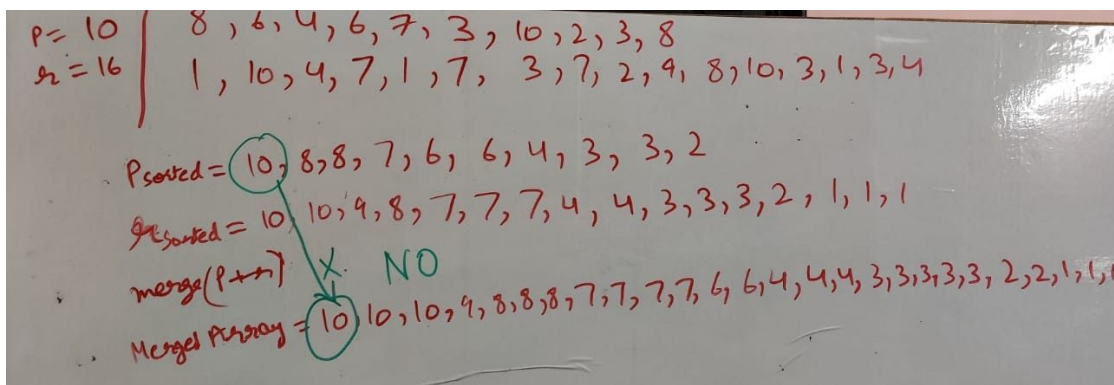 P = 10 8, 6, 4, 6, 7, 3, 10, 2, 3, 8
r = 16 1, 10, 4, 7, 1, 7, 3, 7, 2, 9, 8, 10, 3, 1, 3, 4
Psorted = 10, 8, 8, 7, 6, 6, 4, 3, 3, 2
rsorted = 10, 10, 9, 8, 7, 7, 7, 4, 4, 3, 3, 3, 2, 1, 1, 1
merge(P+r) X NO
Merged Array = 10, 10, 10, 9, 8, 8, 8, 7, 7, 7, 7, 6, 6, 4, 4, 4, 3, 3, 3, 3, 3, 2, 2, 1, 1, 1